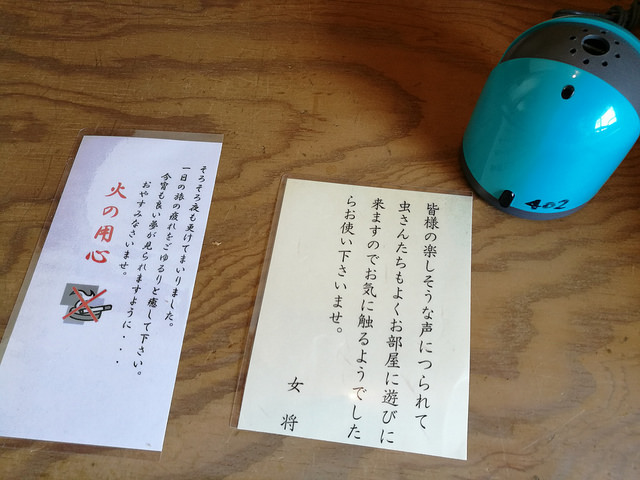 そろそろ夜も更けてまいりました。
一日の旅の疲れをごゆるりと癒して下さい。
今宵も良い夢が見られますように・・・
おやすみなさいませ。
火の用心
皆様の楽しそうな声につられて
虫さんたちもよくお部屋に遊びに
来ますのでお気に触るようでした
らお使い下さいませ。
女将
402